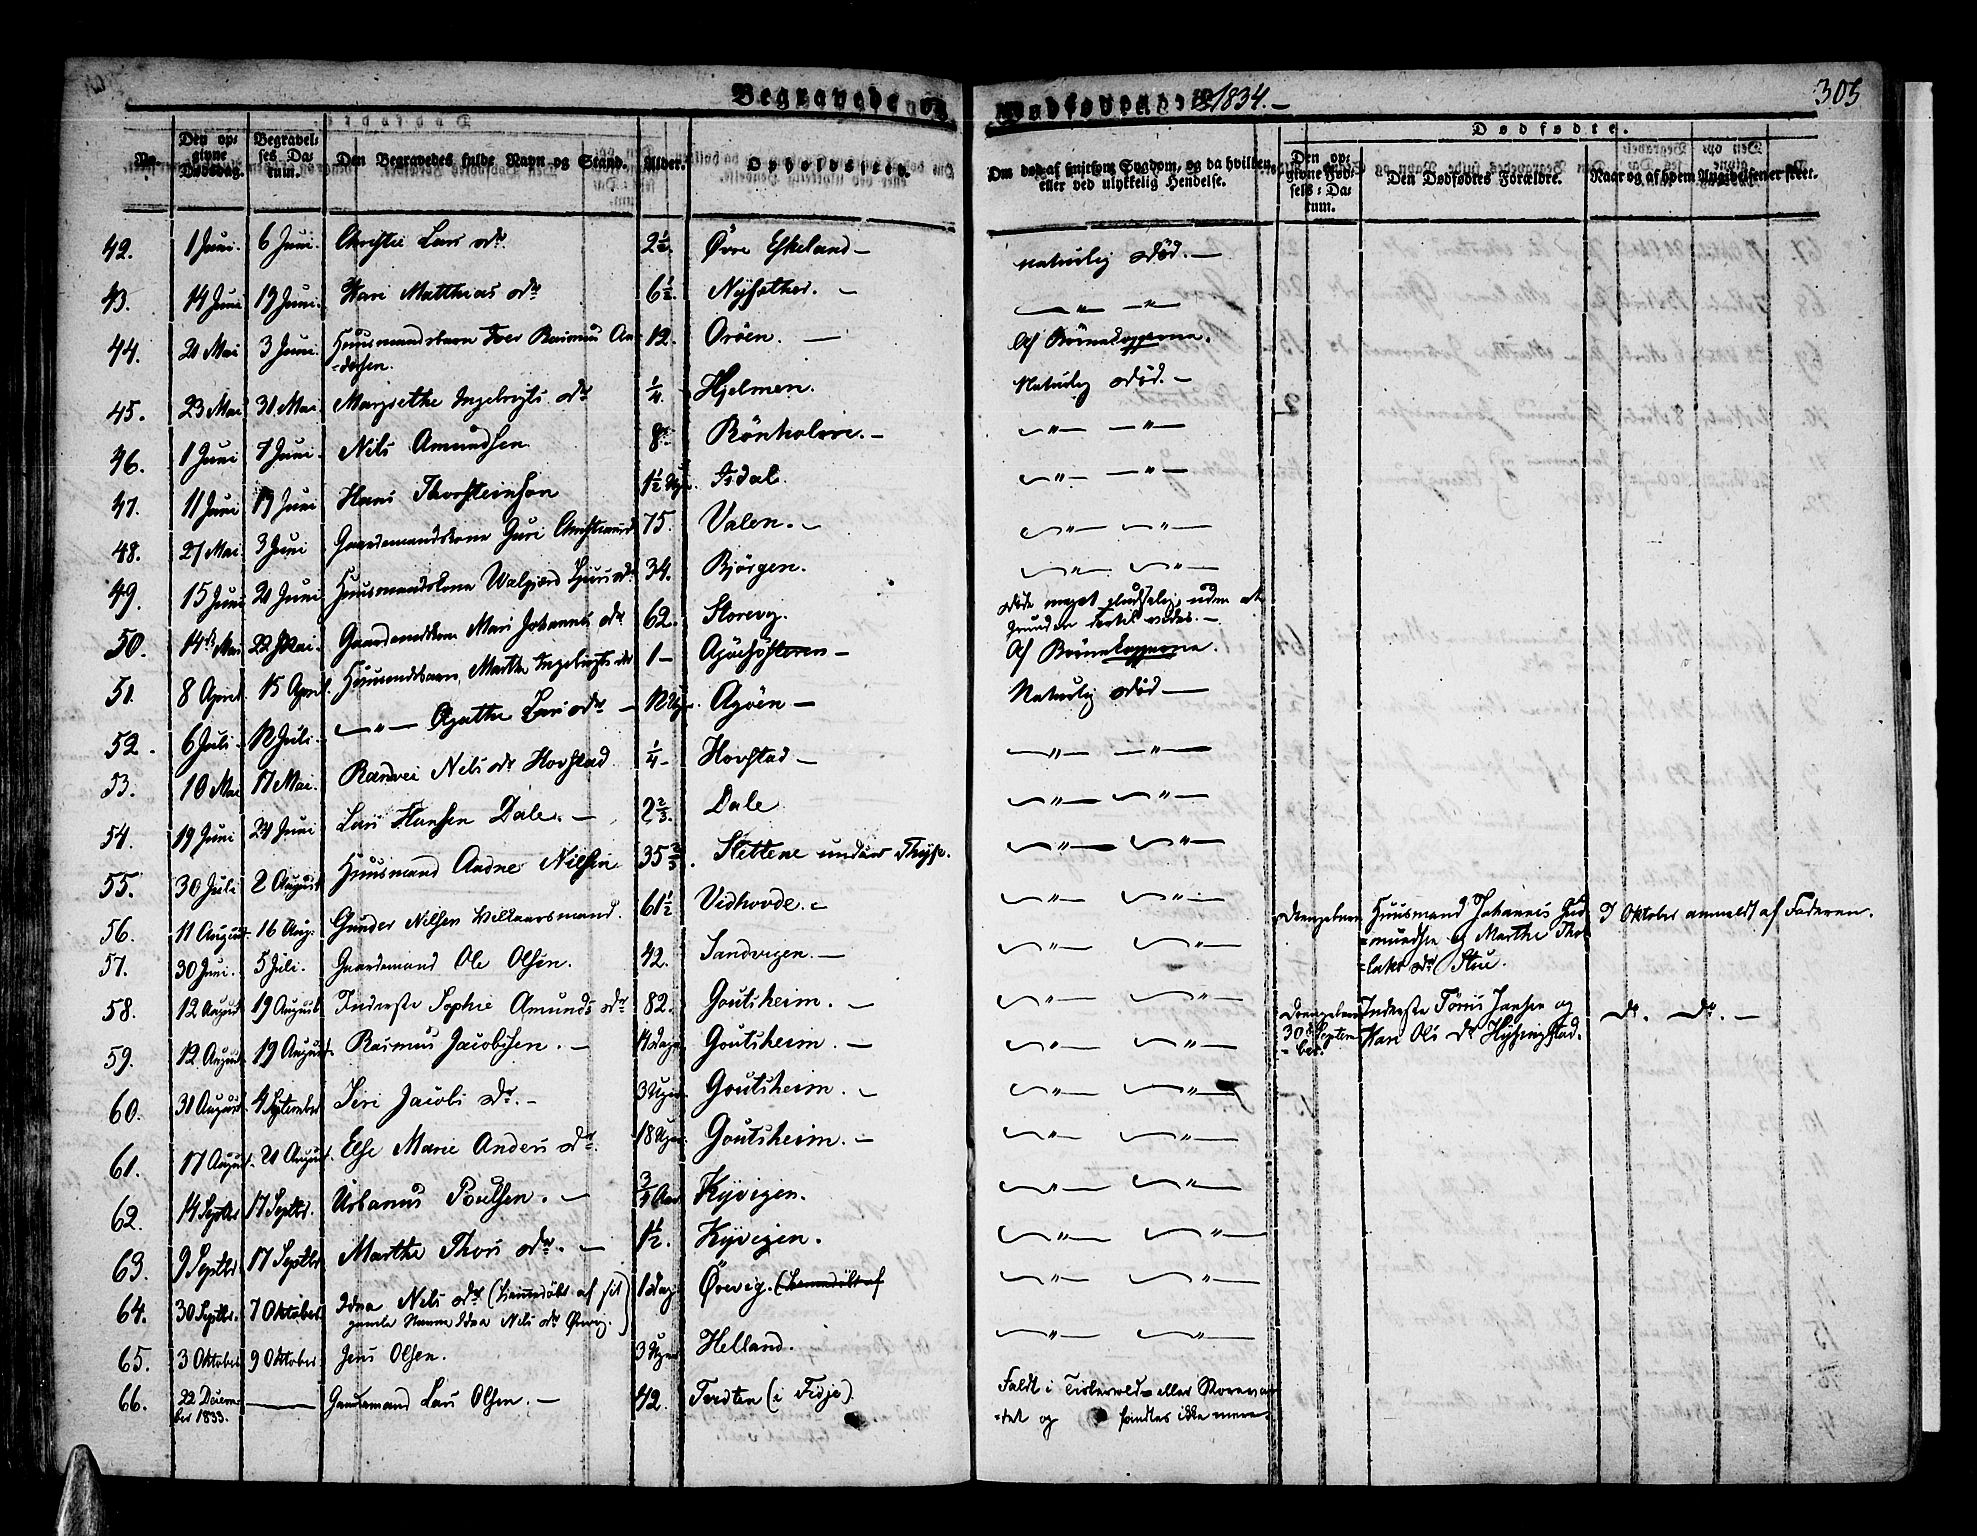 Begravede og Dødfødte. 1834.
305
No.
Den opgivne Dødsdag.
Begravelses Datum.
Den Begravedes fulde Navn og Stand.
Alder.
Opholdssted.
Om død af smitsom Sygdom, og da hvilken, eller ved ulykkelig Hendelse.
Dødfødte.
Den opgivne Fødsels-Datum.
Den Dødfødtes Forældre.
Naar og af hvem Angivelsen er skeet.
42. 1 Juni. 6 Juni. Christie Lars dr. 2½. Øvre Eskeland — naturlig død. —
43. 14 Juni 19 Juni. Kari Matthias dr. 6½. Nysæther. — — " — — " —
44. 21 Mai 3 Juni. Huusmandsbarn Iver Rasmus An= 12. Orøen. — Af Børnekopperne.
=dersen.
45. 23 Mai 31 Mai Margrethe Ingebrigts dr ¼ Hjelmen. Naturlig død. —
46. 1 Juni 7 Juni. Nils Amundsen 8 — " — — " —
47. 11 Juni 19 Juni Hans Thorsteinson 1½ Isdal. — " — — " —
48. 27 Mai 3 Juni Gaardemandskone Guri 75. Valen. — — " — — " —
49. 15 Juni 21 Juni Huusmandskone 34. Bjørgen. — " — — " —
50. 14de Mai 22 Mai. Mari Johannes dr 62. Storevg. døde meget pludselig, uden at
Grunden dertil vides. —
51. 8 April 15 April. Marthe Ingebrigts dr 1 — Af Børnekopperne.
52. 6 Juli. 12 Juli. — " — Agathe Lars dr — 12 Agøen — Naturlig død —
53. 10 Mai 17 Mai. Ranvei Nels dr Hovstad ¼ Hovstad — — " — — " —
54. 19 Juni 24 Juni Lars Hansen Dale. — 2⅔. Dale — " — — " —
55. 30 Juli 2 August Huusmand Andne Nilsen 35⅔. Slettene under — " — — " —
56. 11 August 16 Aug. Gunder Nilsen 61½ Vidhovde. — — " — — " — Drengebarn Huusmand Johannes Gud
=mundsen og Marthe Thor
=laks dr Stue. 7 Oktober anmeldt af Faderen.
57. 30 Juni. 5 Juli. Gaardemand Ole Olsen. 42. Sandvigen. — — " — — " —
58. 12 August 19 August Inderste Sophie Amunds dr 82. Goutsheim. — — " — — " — Drengebarn
30te Septem
=ber. Inderste Jansen og
Kari Ols dr do. do. —
59. 12 August 19 August. Rasmus Jacobsen. — 14 dage Goutsheim. — — " — — " —
60. 31 August 4 September Siri Jacobs dr. — 3 Uger Goutsheim. — — " — — " —
61. 17 August. 21 August. Else Marie Anders dr. 18 Uger Goutsheim. — — " — — " —
62. 14 Septbr 17 Septbr. Urbanus Poulsen. — ¾ Aar Kyvigen. — " — — " —
63. 9 Septbr 17 Septbr Marthe Thors dr. — 1½. Kyvigen. — " — — " —
64. 30 Septbr. 7 Oktober. Nils dr (hiemmedøbt af 1 dag Ørevig. — " — — " —
gamle Nils dr Ørevig.)
65. 3 Oktober 9 Oktober Jens Olsen. 3 Uger Helland. — " — — " —
66. 22 Decem
ber 1833. — Gaardemand Lars Olsen. — 42. (i Fidje). Faldt i
=det og fandtes ikke mere.